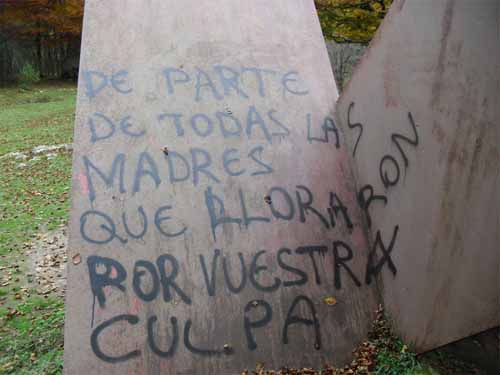 DE PARTE
DE TODAS LAS
MADRES
QUE LLORARON
POR VUESTRA
CULPA